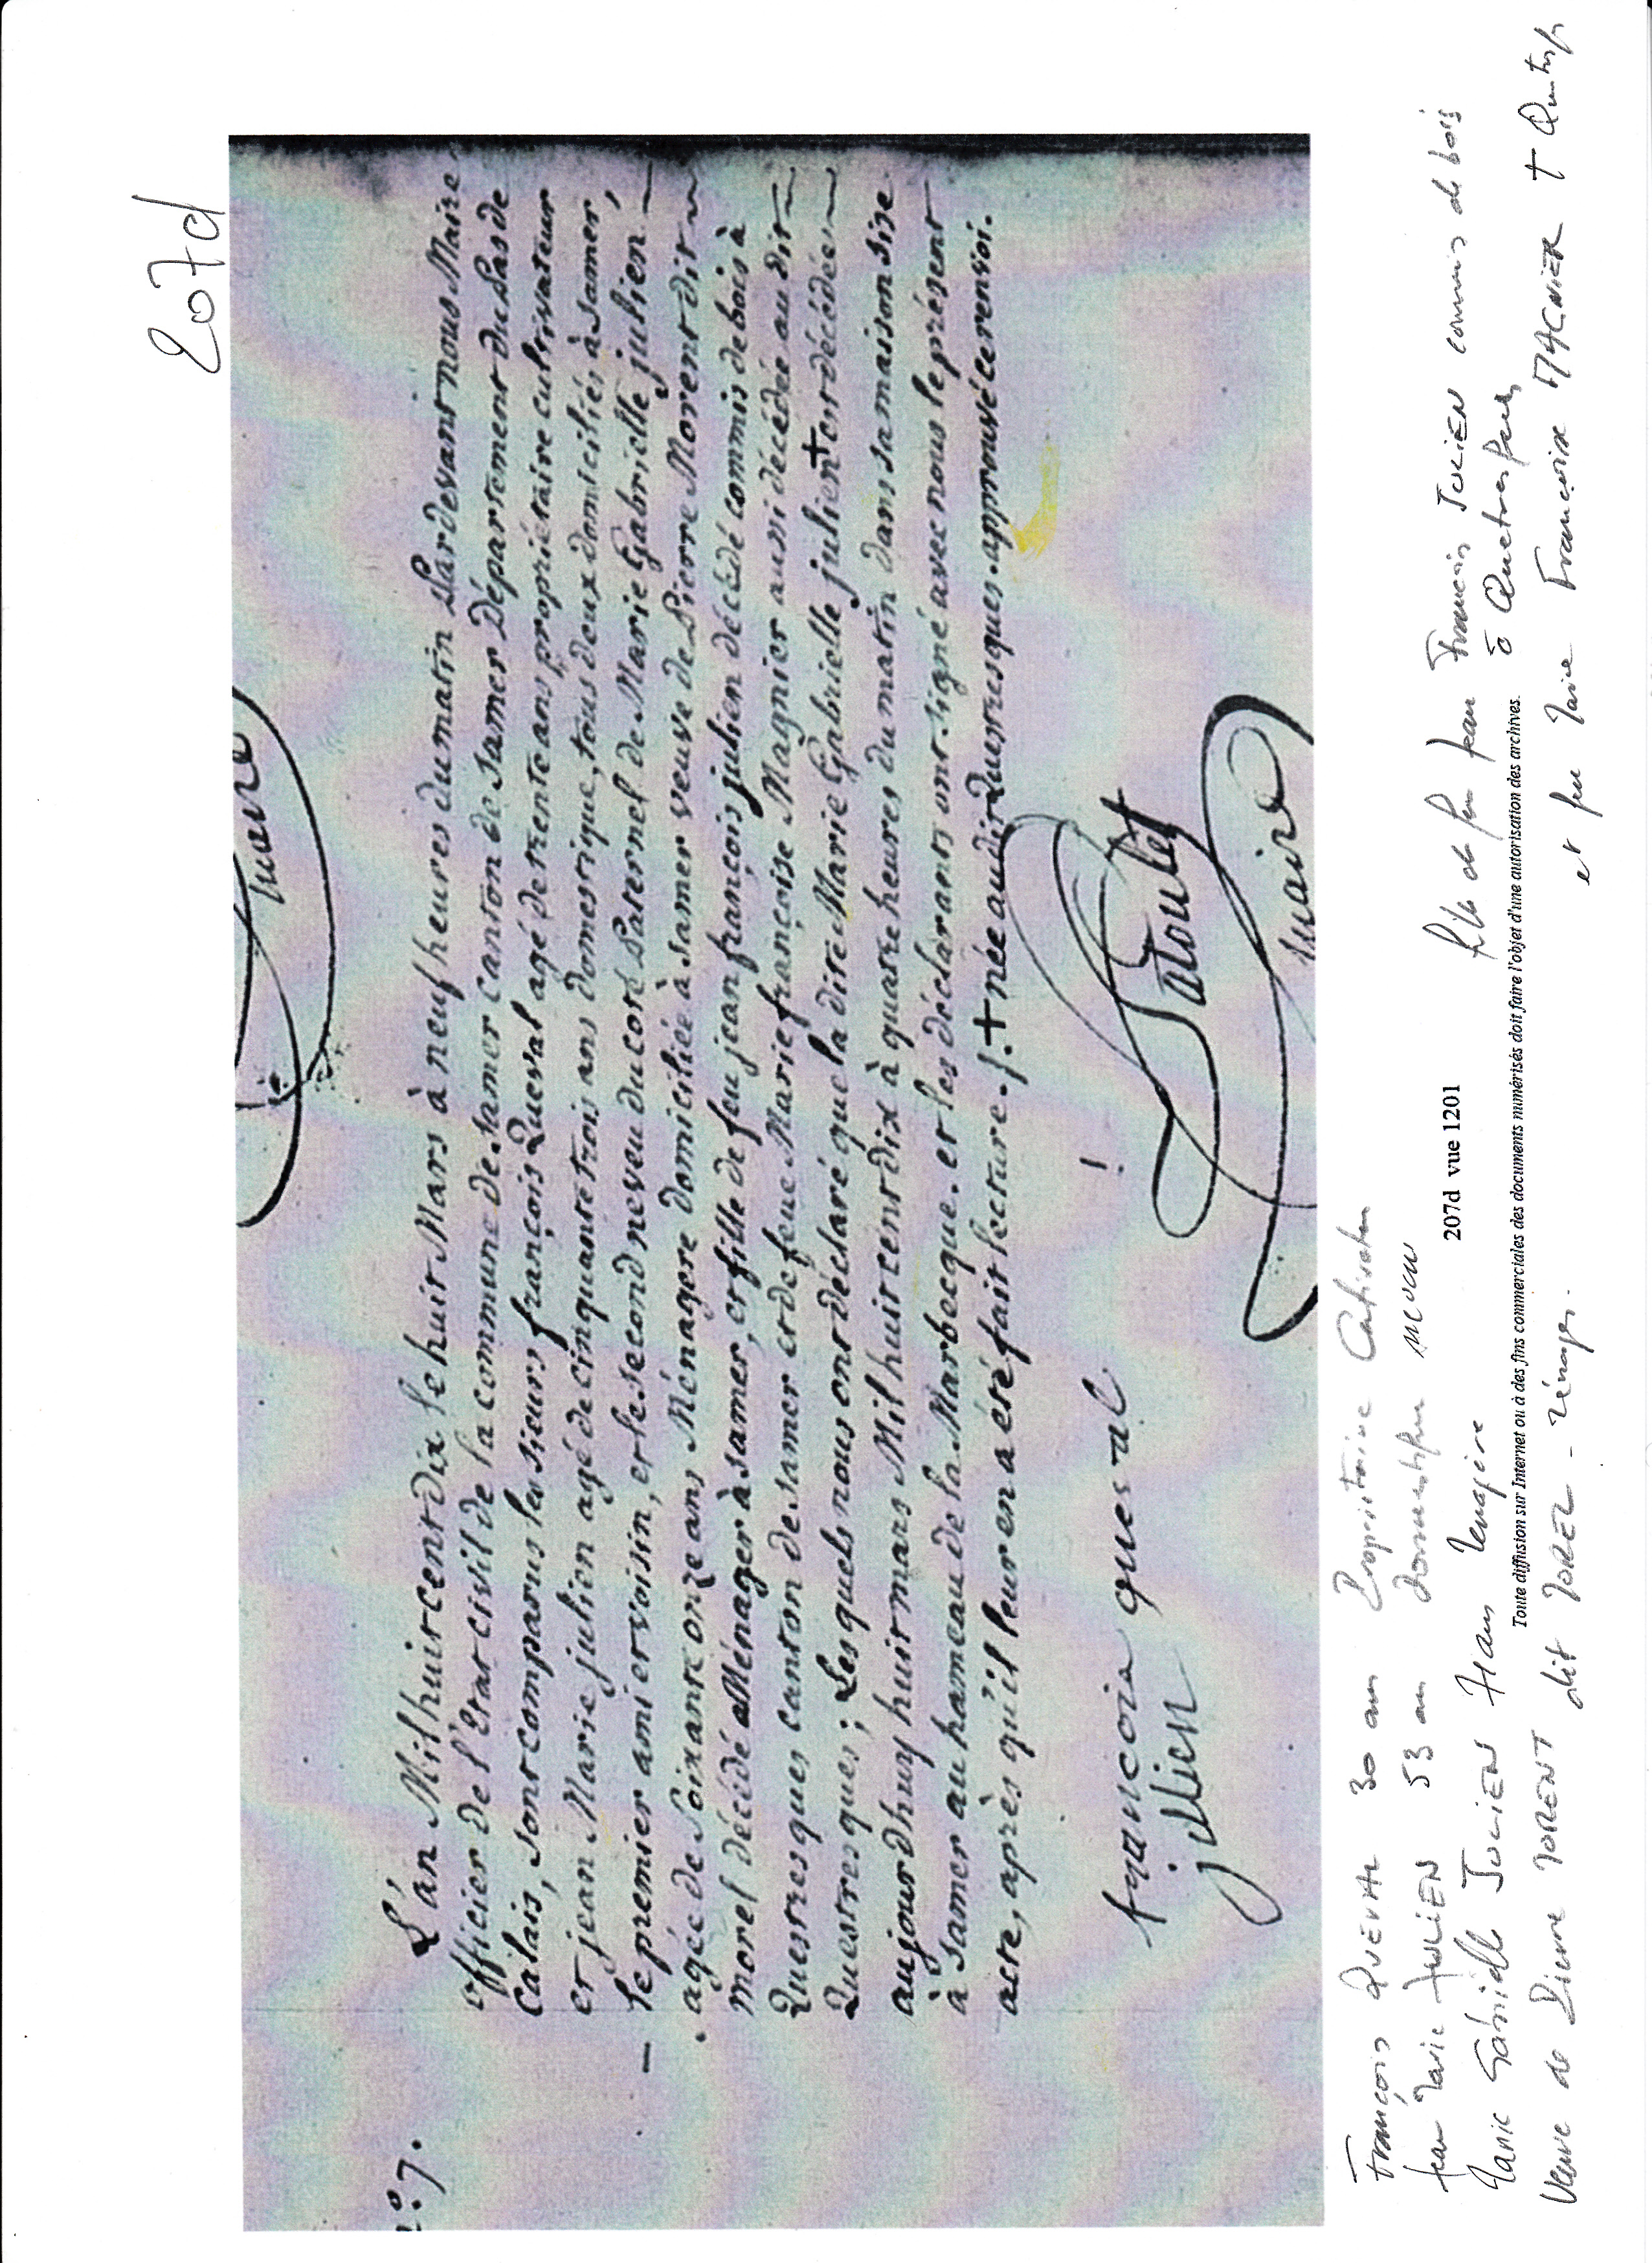 207d
maire
N° 7.
L'an Mil huit cent dix le huit Mars à neuf heures du matin Pardevant nous Maire
officier de l'Etat civil de la commune de Samer canton de Samer Département du Pas de
Calais, sont comparus les sieurs françois Queval agé de trente ans propriétaire cultivateur
et jean Marie julien agé de cinquante trois ans Domestique, tous deux domiciliés à Samer,
le premier ami et voisin, et le second neveu du coté Paternel de Marie Gabrielle julien —
agée de Soixante onze ans Ménagere domiciliée à Samer veuve de Pierre Morent dit
morel décédé Ménager à Samer, et fille de feu jean françois julien décédé commis de bois à
Questresques canton de Samer et de feue Marie françoise Magnier aussi décédée au dit
Questresques ; Les quels nous ont déclaré que la dite Marie Gabrielle julien + est décédée
aujourdhuy huit mars Mil huit cent dix à quatre heures du matin dans sa maison sise
à Samer au hameau de la Marbecque. et les déclarants ont signé avec nous le présent
acte, après qu'il leur en a été fait lecture. /. + née au dit Questresques. approuvé ce renvoi.
francois queval
julien
Patoulet
maire
François QUEVAL 30 ans Propriétaire Cultivateur
Jean Marie JULIEN 53 ans domestique neveu
207d vue 1201
Marie Gabrielle JULIEN 71 ans Menagère fille de feu Jean François JULIEN commis de bois
à Questresques
Toute diffusion sur Internet ou à des fins commerciales des documents numérisés doit faire l'objet d'une autorisation des archives.
Veuve de Pierre MORENT dit MOREL - ménager. et feu Marie Françoise MAGNIER +